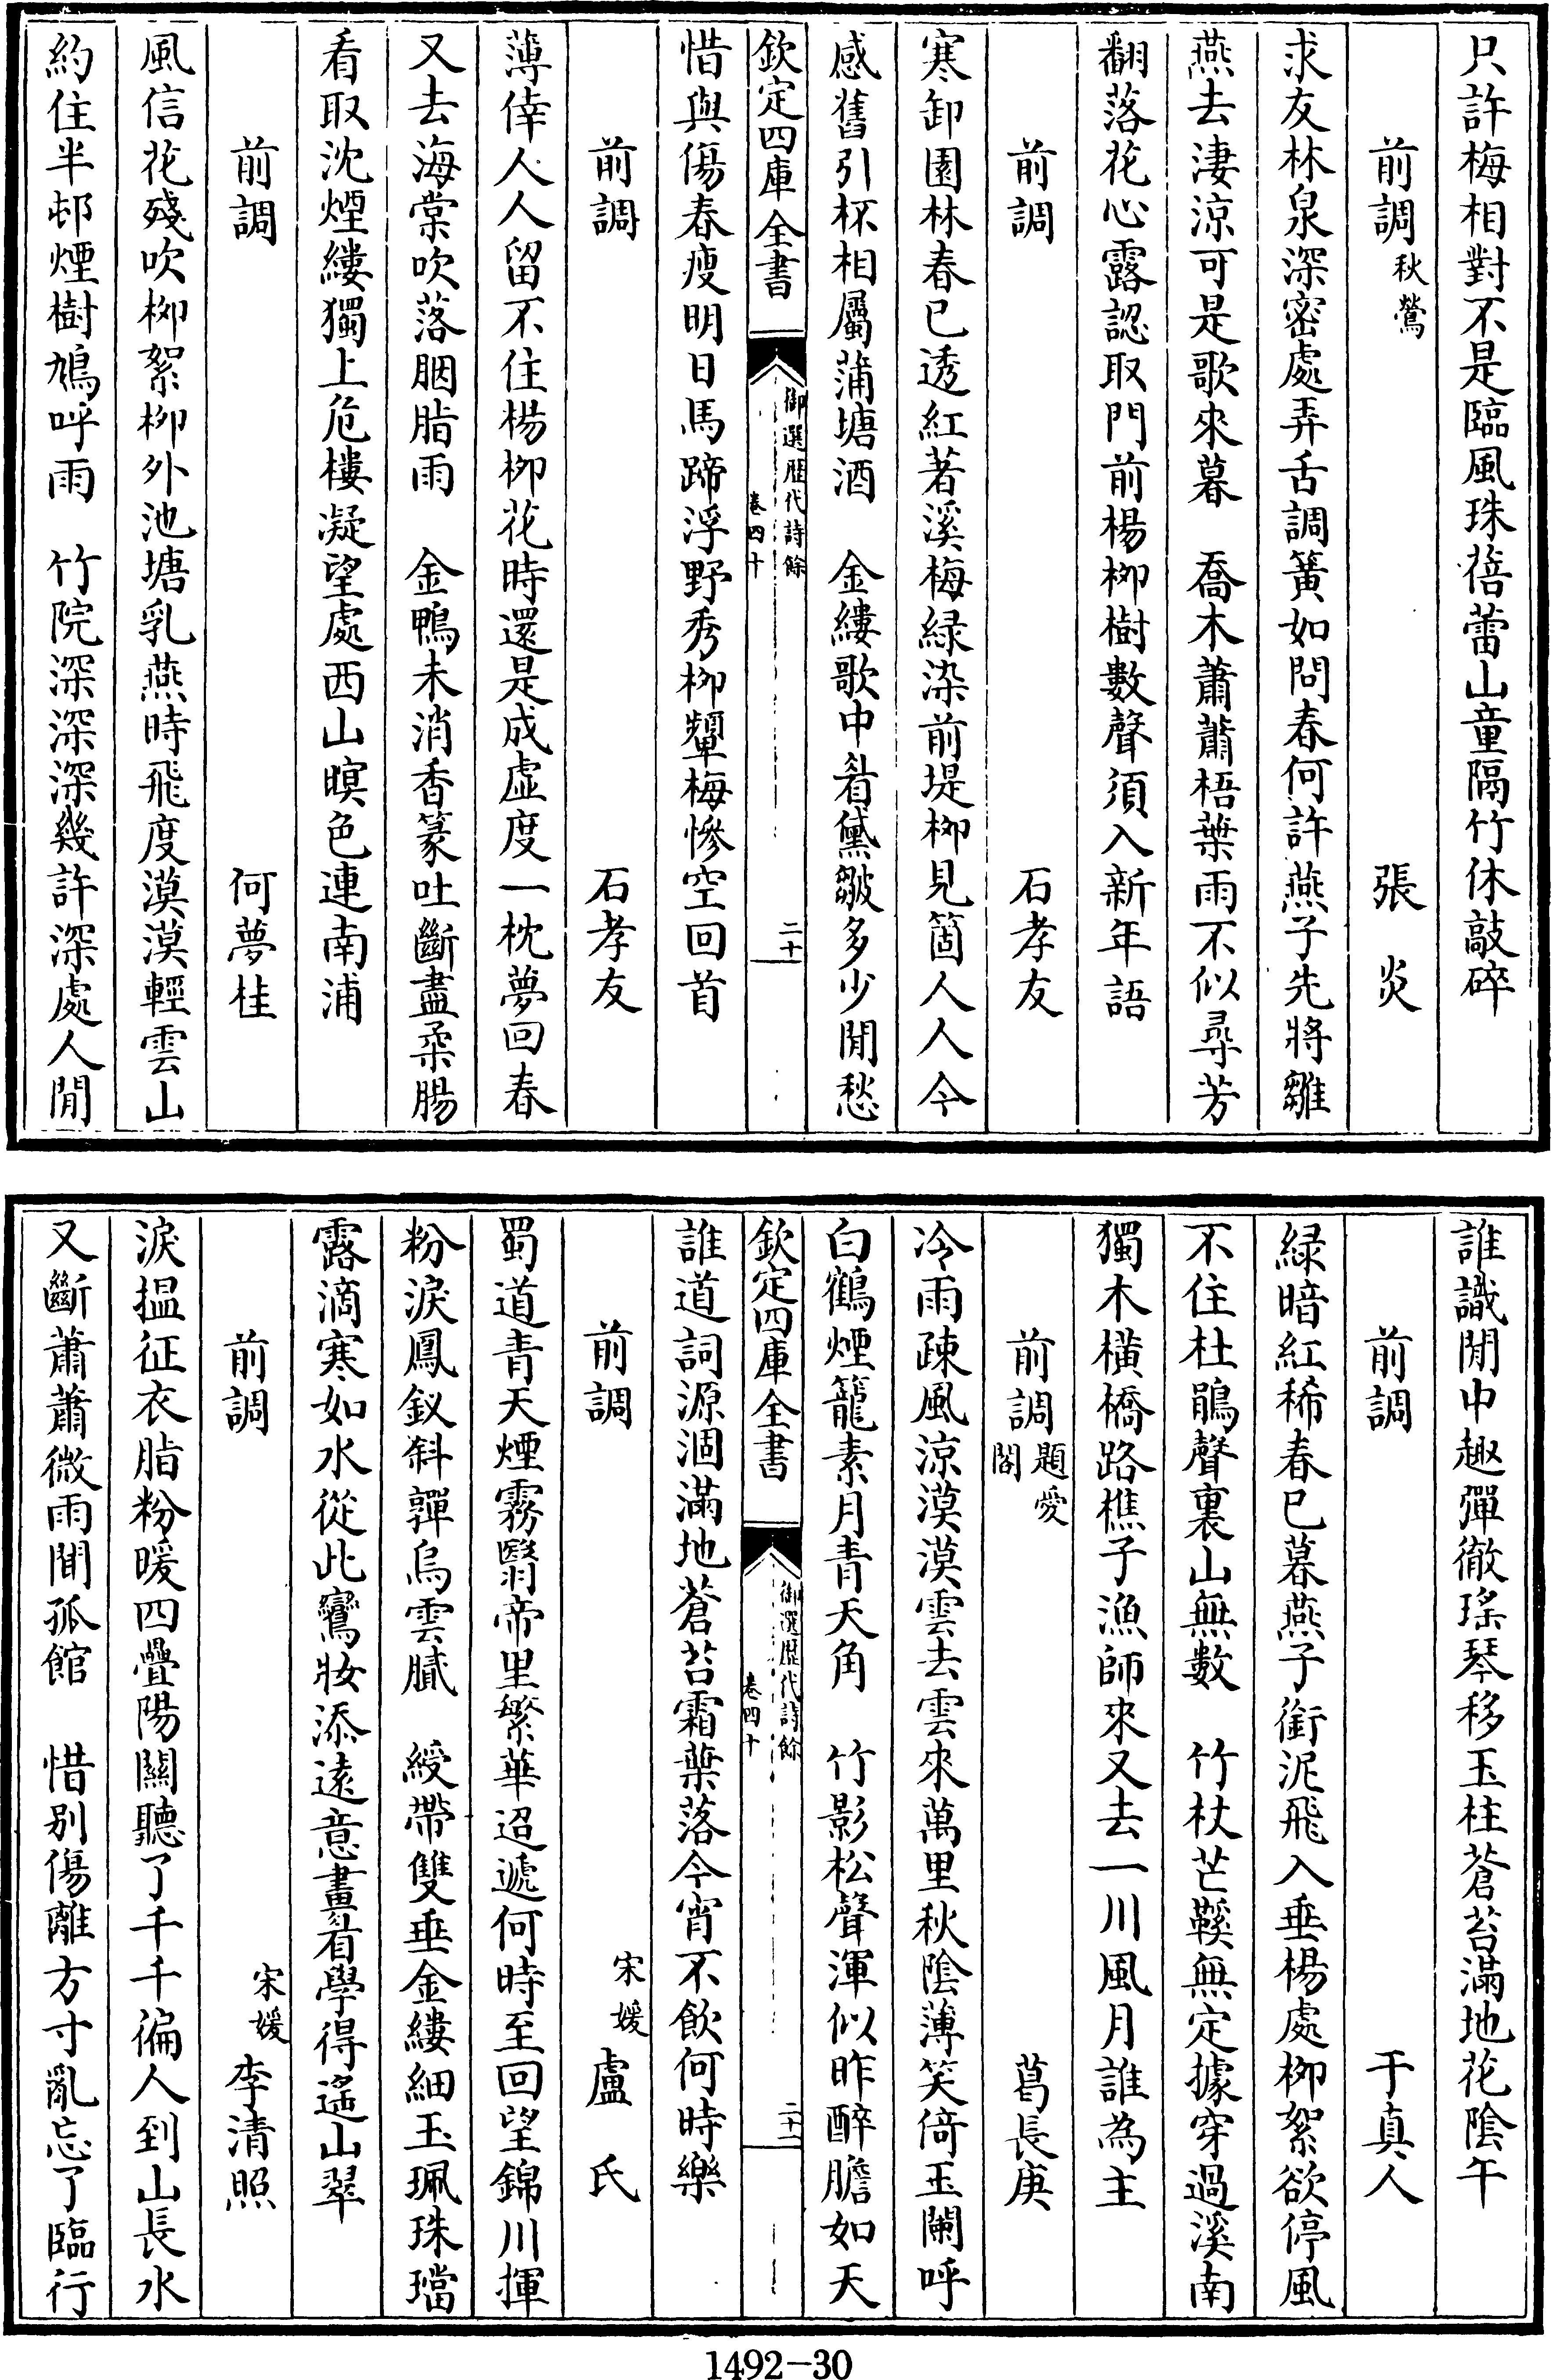 只許梅相對不是臨風珠蓓蕾山童隔竹休敲碎
前調秋鶯　張炎
求友林泉深密處弄舌調簧如問春何許燕子先將雛
燕去淒涼可是歌來暮　喬木蕭蕭梧葉雨不似尋芳
翻落花心露認取門前楊柳樹數聲須入新年語
前調　石孝友
寒卸園林春已透紅著溪梅緑染前堤柳見箇人人今
感舊引杯相屬蒲塘酒　金縷歌中眉黛皺多少閒愁
欽定四庫全書　御選歷代詩餘　卷四十　二十
惜與傷春瘦明日馬蹄浮野秀柳顰梅慘空回首
前調　石孝友
薄倖人人留不住楊柳花時還是成虛度一枕夢回春
又去海棠吹落胭脂雨　金鴨未消香篆吐斷盡柔腸
看取沈煙縷獨上危樓凝望處西山暝色連南浦
前調　何夢桂
風信花殘吹柳絮柳外池塘乳燕時飛度漠漠輕雲山
約住半邨煙樹鳩呼雨　竹院深深深幾許深處人閒
誰識閒中趣彈徹瑤琴移玉柱蒼苔滿地花陰午
前調　于真人
緑暗紅稀春已暮燕子銜泥飛入垂楊處柳絮欲停風
不住杜鵑聲裏山無數　竹杖芒鞵無定據穿過溪南
獨木橫橋路樵子漁師來又去一川風月誰為主
前調題愛閣　葛長庚
冷雨疎風涼漠漠雲去雲來萬里秋陰薄笑倚玉闌呼
白鶴煙籠素月青天角　竹影松聲渾似昨醉膽如天
欽定四庫全書　御選歷代詩餘　卷四十　二十一
誰道詞源涸滿地蒼苔霜葉落今宵不飲何時樂
前調　宋媛盧氏
蜀道青天煙霧翳帝里繁華迢遞何時至回望錦川揮
粉淚鳳釵斜嚲烏雲膩　綬帶雙垂金縷細玉珮珠璫
露滴寒如水從此鸞妝添遠意畫眉學得遙山翠
前調　宋媛李清照
淚搵征衣脂粉暖四疊陽關聽了千千徧人到山長水
又斷蕭蕭微雨聞孤館　惜別傷離方寸亂忘了臨行
1492-30